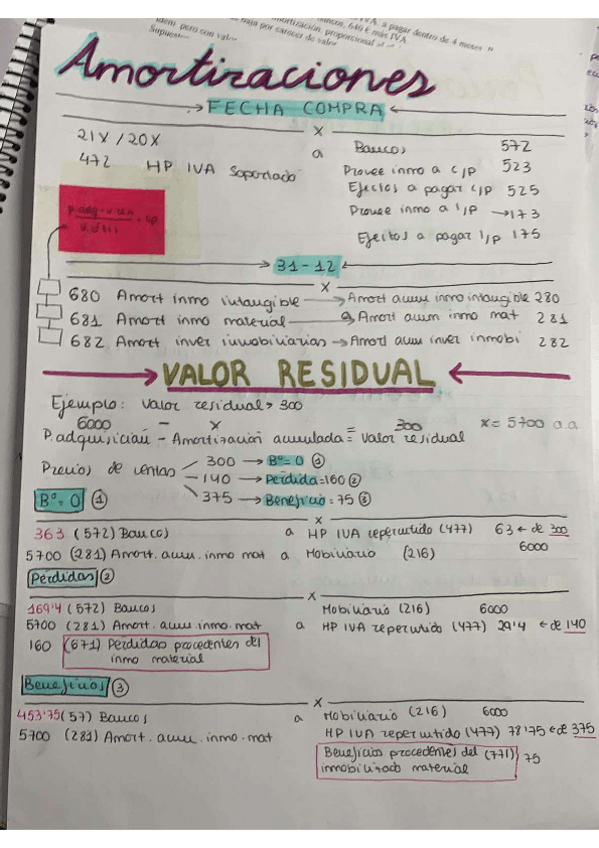 a pagar dentro de 4 meses
646 € más IVA
amortización proporcional
Idem, pero con valor
baja por carecer de valor
Supuesto
Amortizaciones
FECHA COMPRA
x
21X / 20X a Bancos 572
472 HP IVA Soportado Provee inmo a C/P 523
Efectos a pagar C/P 525
Provee inmo a l/p → 173
Efectos a pagar l/p 175
31-12
x
680 Amort inmo intangible → Amort acum inmo intangible 280
681 Amort inmo material → Amort acum inmo mat 281
682 Amort inver inmobiliarias → Amort acum inver inmobi 282
VALOR RESIDUAL
Ejemplo: valor residual → 300
6000 - x = 300 x = 5700 a.a
P.adquisición - Amortización acumulada = Valor residual
Precios de ventas 300 → Bº = 0 ①
140 → Pérdida = 160 ②
375 → Beneficio = 75 ③
Bº = 0 ①
x
363 (572) Bancos a HP IVA repercutido (477) 63 ← de 300
5700 (281) Amort. acum. inmo mat a Mobiliario (216) 6000
Pérdidas ②
x
169'4 (572) Bancos Mobiliario (216) 6000
5700 (281) Amort. acum. inmo. mat a HP IVA repercutido (477) 29'4 ← de 140
160 (671) Perdidas procedentes del
inmo material
Beneficios ③
x
453'75 (57) Bancos a Mobiliario (216) 6000
5700 (281) Amort. acum. inmo. mat HP IVA repercutido (477) 78'75 ← de 375
Beneficios procedentes del (771) 75
inmobilizado material